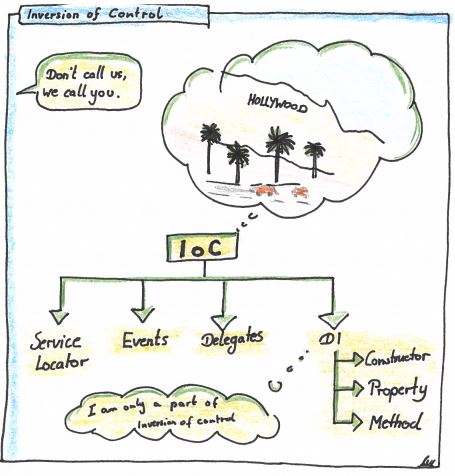 Inversion of Control
Don't call us,
we call you.
HOLLYWOOD
IoC
Service
Locator
Events
Delegates
DI
Constructor
Property
Method
I am only a part of
Inversion of control